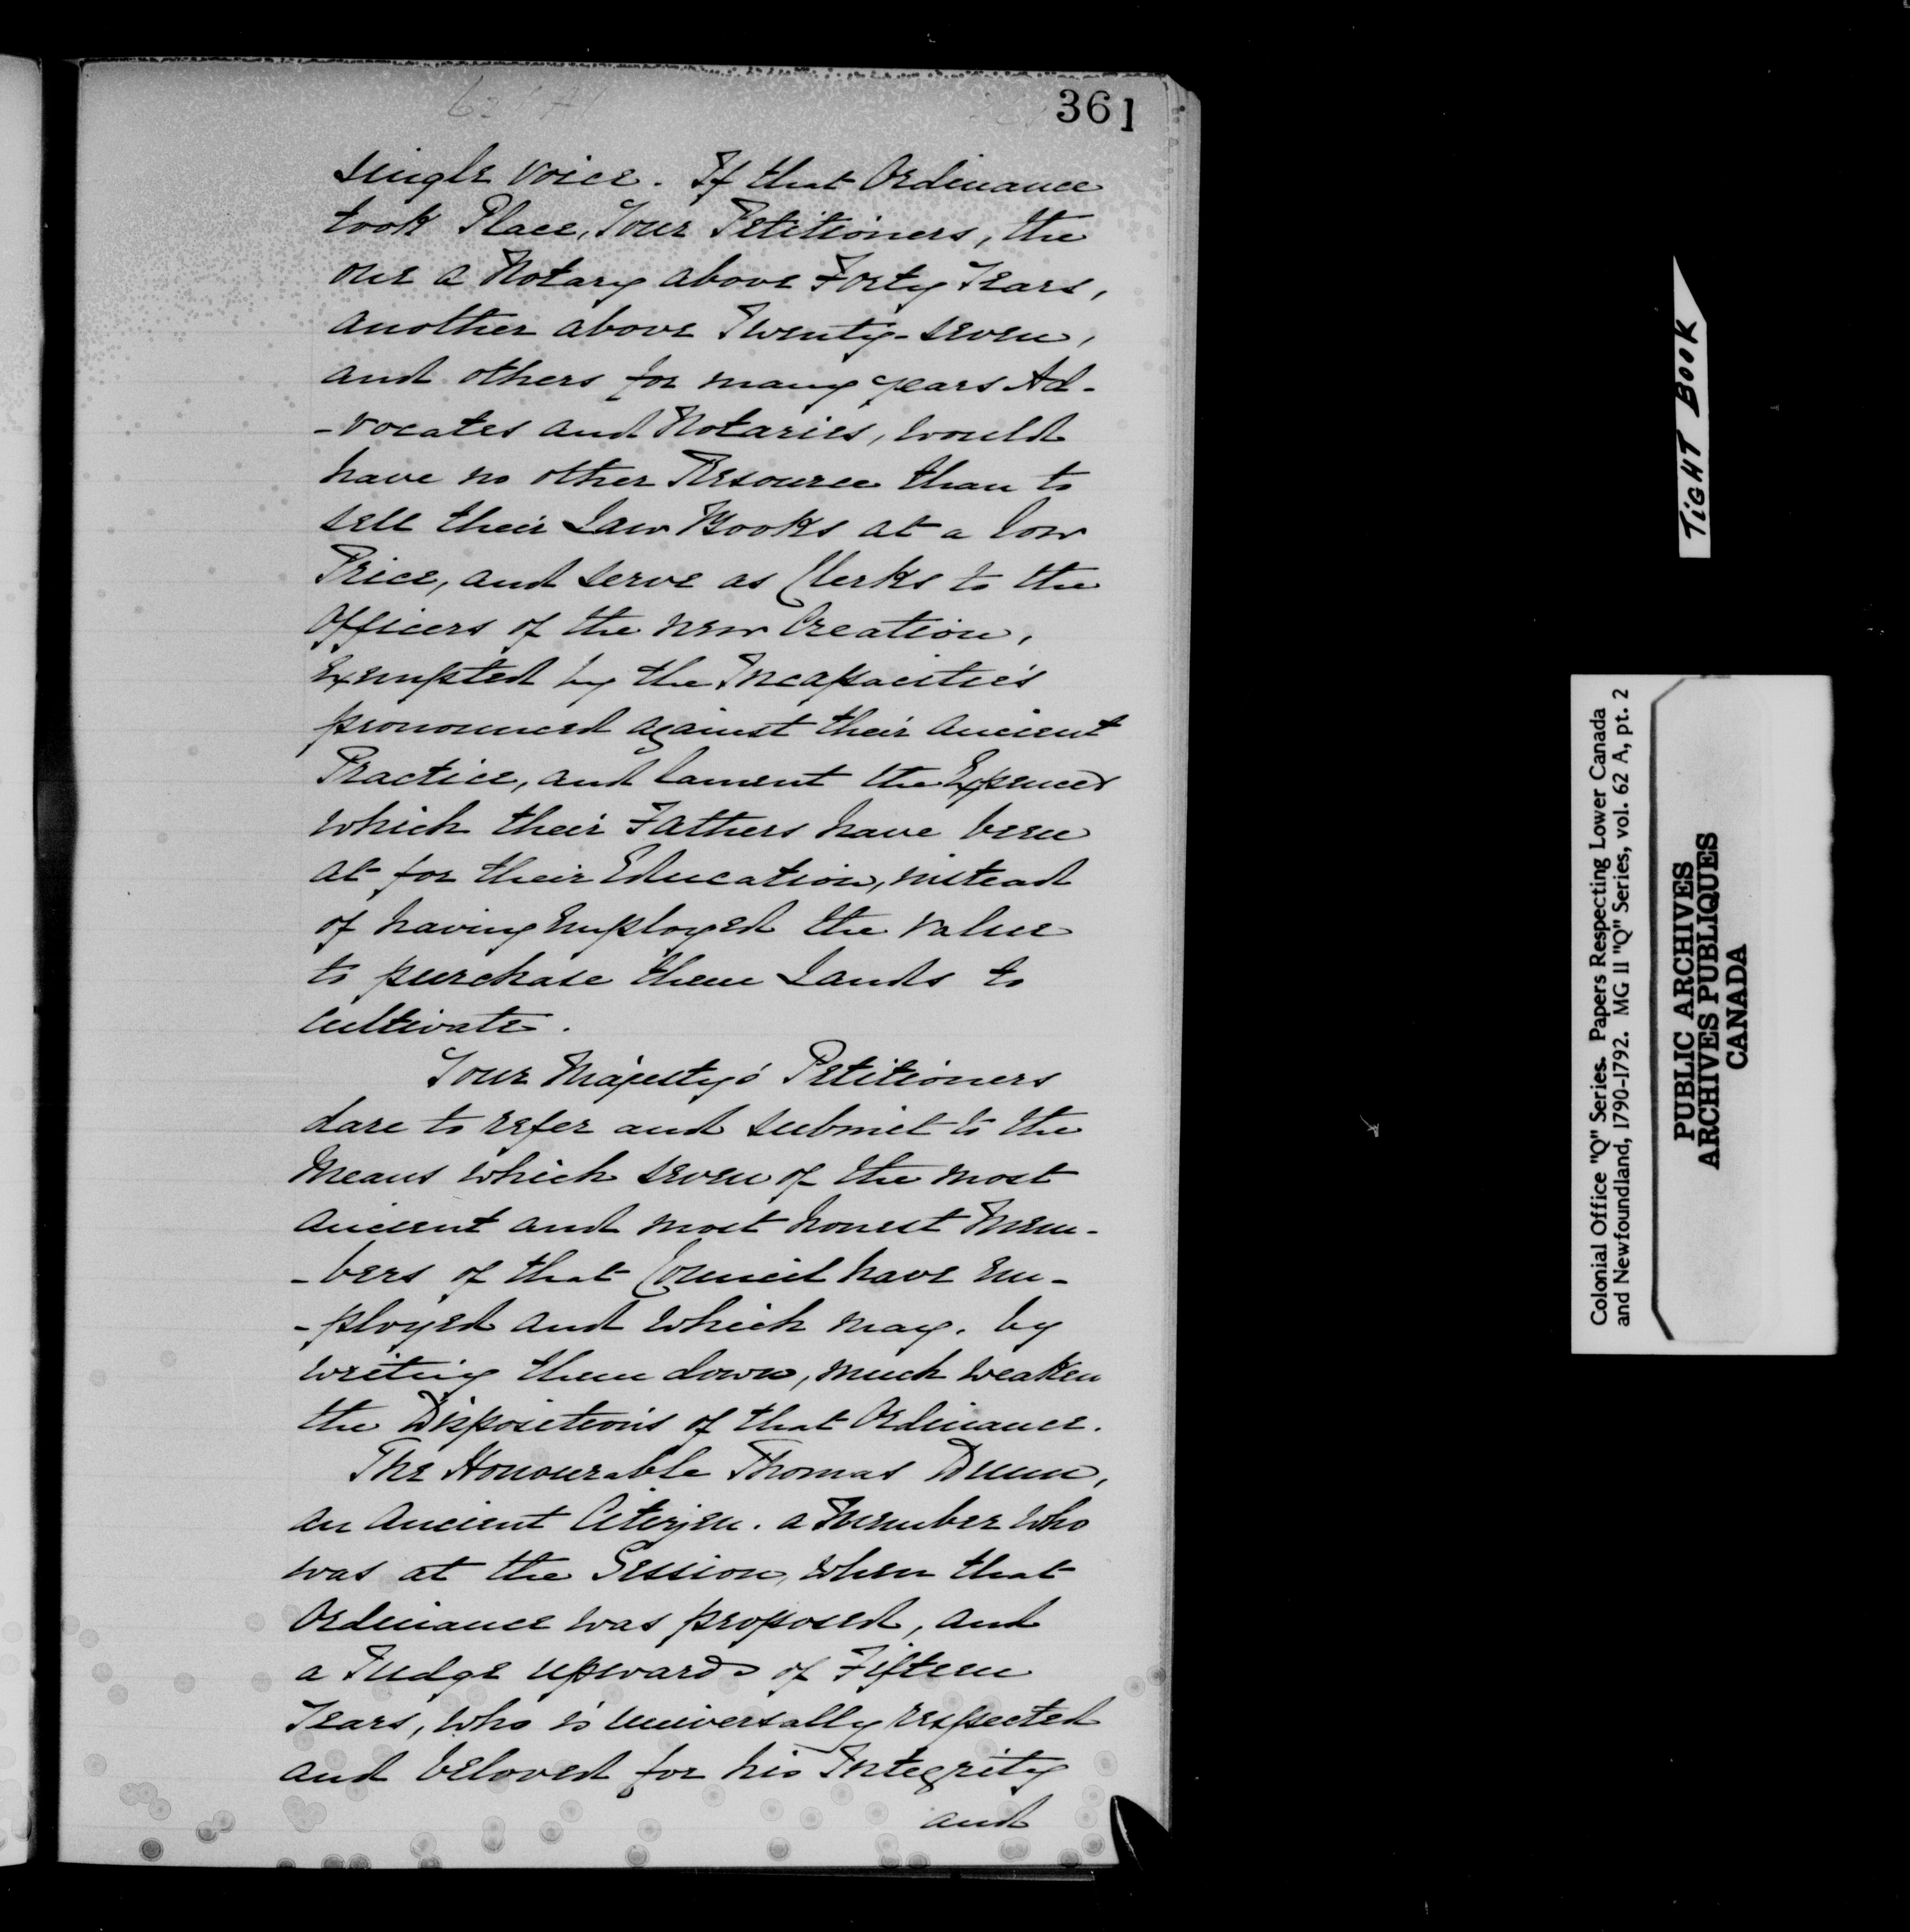 361
single voice. If that Ordinance
took Place, Your Petitioners, the
one a Notary above Forty Years,
another above Twenty-seven,
and others for many years Ad-
-vocates and Notaries, would
have no other Resource than to
sell their Law Books at a low
Price, and serve as Clerks to the
Officers of the new Creation,
Exempted by the Incapacities
pronounced against their ancient
Practice, and lament the Expences
which their Fathers have been
at for their Education, instead
of having employed the value
to purchase them Lands to
cultivate.
Your Majesty's Petitioners
dare to refer and submit to the
Means which seven of the most
ancient and most honest Mem-
-bers of that Council have em-
-ployed and which may. by
writing them down, much weaken
the Dispositions of that Ordinance.
The Honourable Thomas Dunn,
an ancient Citizen. a Member who
was at the Session, when that
Ordinance was proposed, and
a Judge upwards of Fifteen
Years, who is universally respected
and beloved for his Integrity
and
TIGHT BOOK
Colonial Office "Q" Series. Papers Respecting Lower Canada
and Newfoundland, 1790-1792. MG 11 "Q" Series, vol. 62 A, pt. 2
PUBLIC ARCHIVES
ARCHIVES PUBLIQUES
CANADA